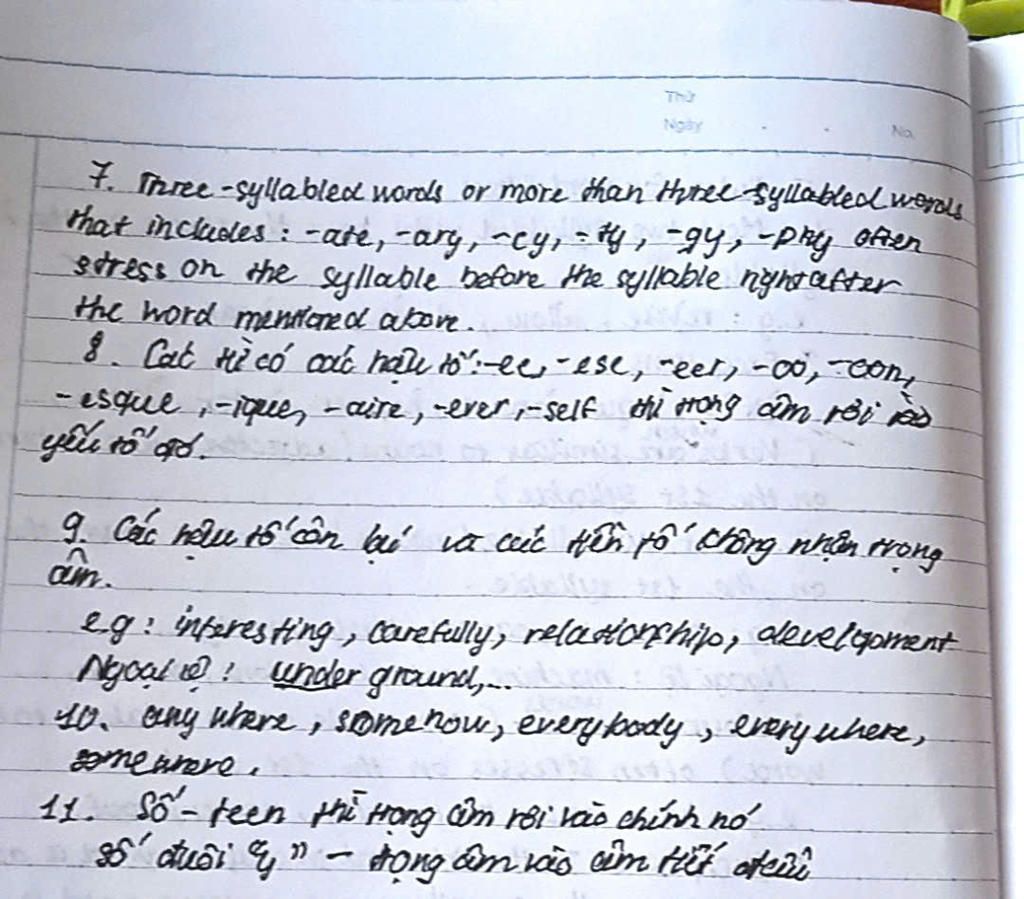 Thứ
Ngày . . No.
7. Three-syllabled words or more than three-syllabled words
that includes : -ate, -ary, -cy, -ty, -gy, -phy often
stress on the syllable before the syllable right after
the word mentioned above.
8. Các từ có các hậu tố : -ee, -ese, -eer, -oo, -oon,
-esque, -ique, -aire, -ever, -self thì trọng âm rơi vào
yếu tố đó.
9. Các hậu tố còn lại và các tiền tố không nhận trọng
âm.
e.g : interesting, carefully, relationship, development
Ngoại lệ : underground,...
10. anywhere, somehow, everybody, everywhere,
somewhere.
11. Số -teen thì trọng âm rơi vào chính nó
số đuôi "y" - trọng âm vào âm tiết đầu